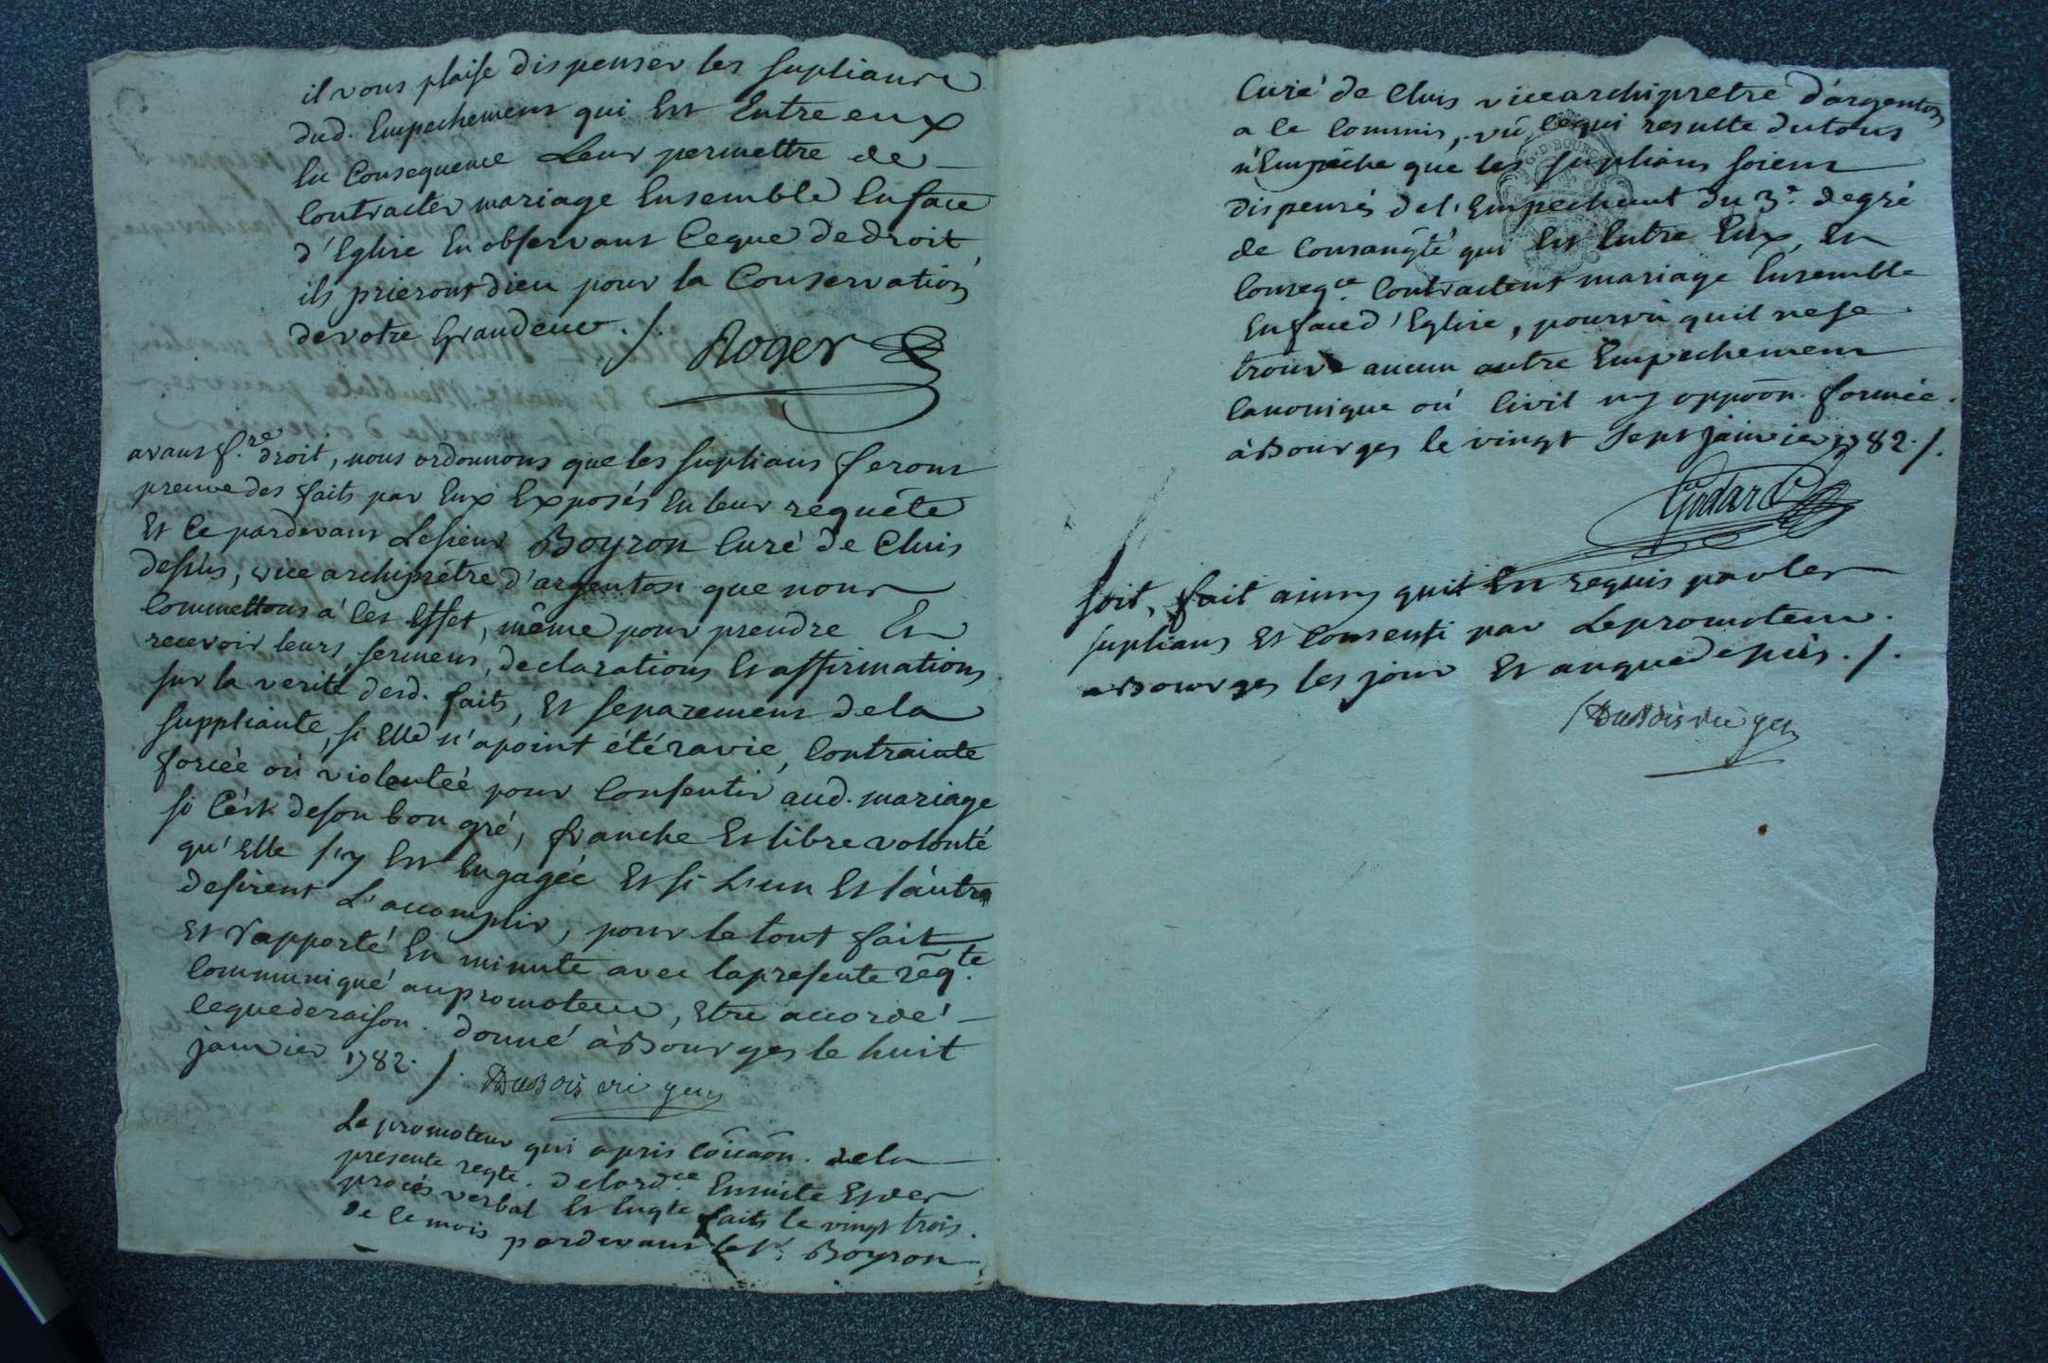 il vous plaise dispenser les supliants
dud. Empechement qui Est Entre eux
En Consequence Leur permettre de
Contracter mariage Ensemble En face
d'Eglise En observant Ceque de droit,
ils prieront dieu pour la Conservation
de votre Grandeur ./. Roger
avant f.re droit, nous ordonnons que les suplians feront
preuve des faits par Eux Exposés En leur requête
Et Ce pardevant Lesieur Boyron Curé de Cluis
desus, vice archiprêtre d'argenton que nous
Commettons à Cet Effet, même pour prendre Et
recevoir leurs serments, declarations Et affirmations
sur la verité desd. faits, Et separement dela
suppliante, si Elle n'apoint été ravie, Contrainte
forcée ou violentée pour Consentir aud. mariage
si C'est deson bon gré, franche Et libre volonté
qu'Elle s'y Est Engagée Et si L'un Et l'autre
desirent L'accomplir, pour le tout fait
Et rapporté En minute avec lapresente req.te
Communiqué aupromoteur, Etre accordé
Ceque deraison. Donné à Bourges le huit
janvier 1782 ./. DuBois vic gen
Le promoteur qui a pris cõicaõn. dela
presente reqte. delord.ce Ensuite Et des
procés verbal Et Enqte faits le vingt trois.
de Ce mois pardevant le sr. Boyron
Curé de Cluis vicearchipretre d'argenton
a Ce Commis, vû Cequi resulte dutout
n'Empêche que les suplians soient
dispensés de l'Empechemt du 3.e degré
de Consangté qui Est Entre Eux, En
Conseq.ce Contractent mariage Ensemble
En face d'Eglise, pourvû quil nese
trouve aucun autre Empechement
Canonique ou Civil ny oppoõn. formée.
à Bourges le vingt sept janvier 1782 ./.
Godard
soit, fait ainsy quil Est requis par les
suplians Et Consenti par Lepromoteur.
à Bourges les jour Et anquedesus ./.
DuBois vic gen